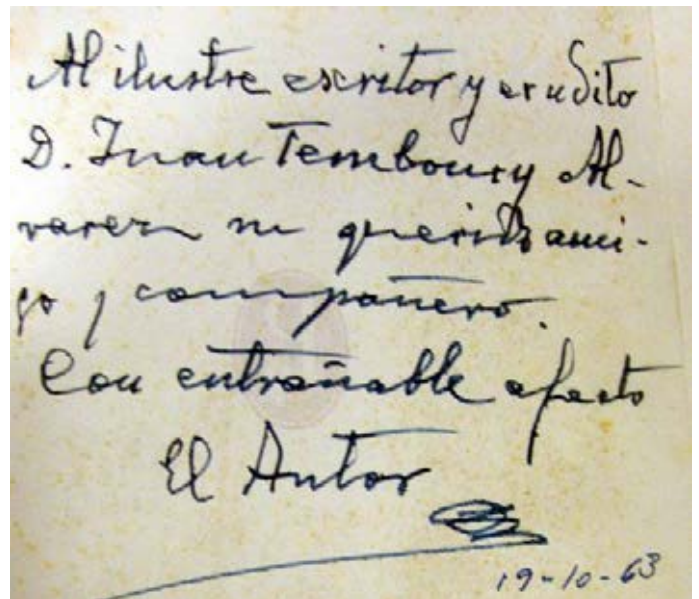 Al ilustre escritor y erudito
D. Juan Temboury Al-
varez mi querido ami-
go y compañero.
Con entrañable afecto
El Autor
19-10-63